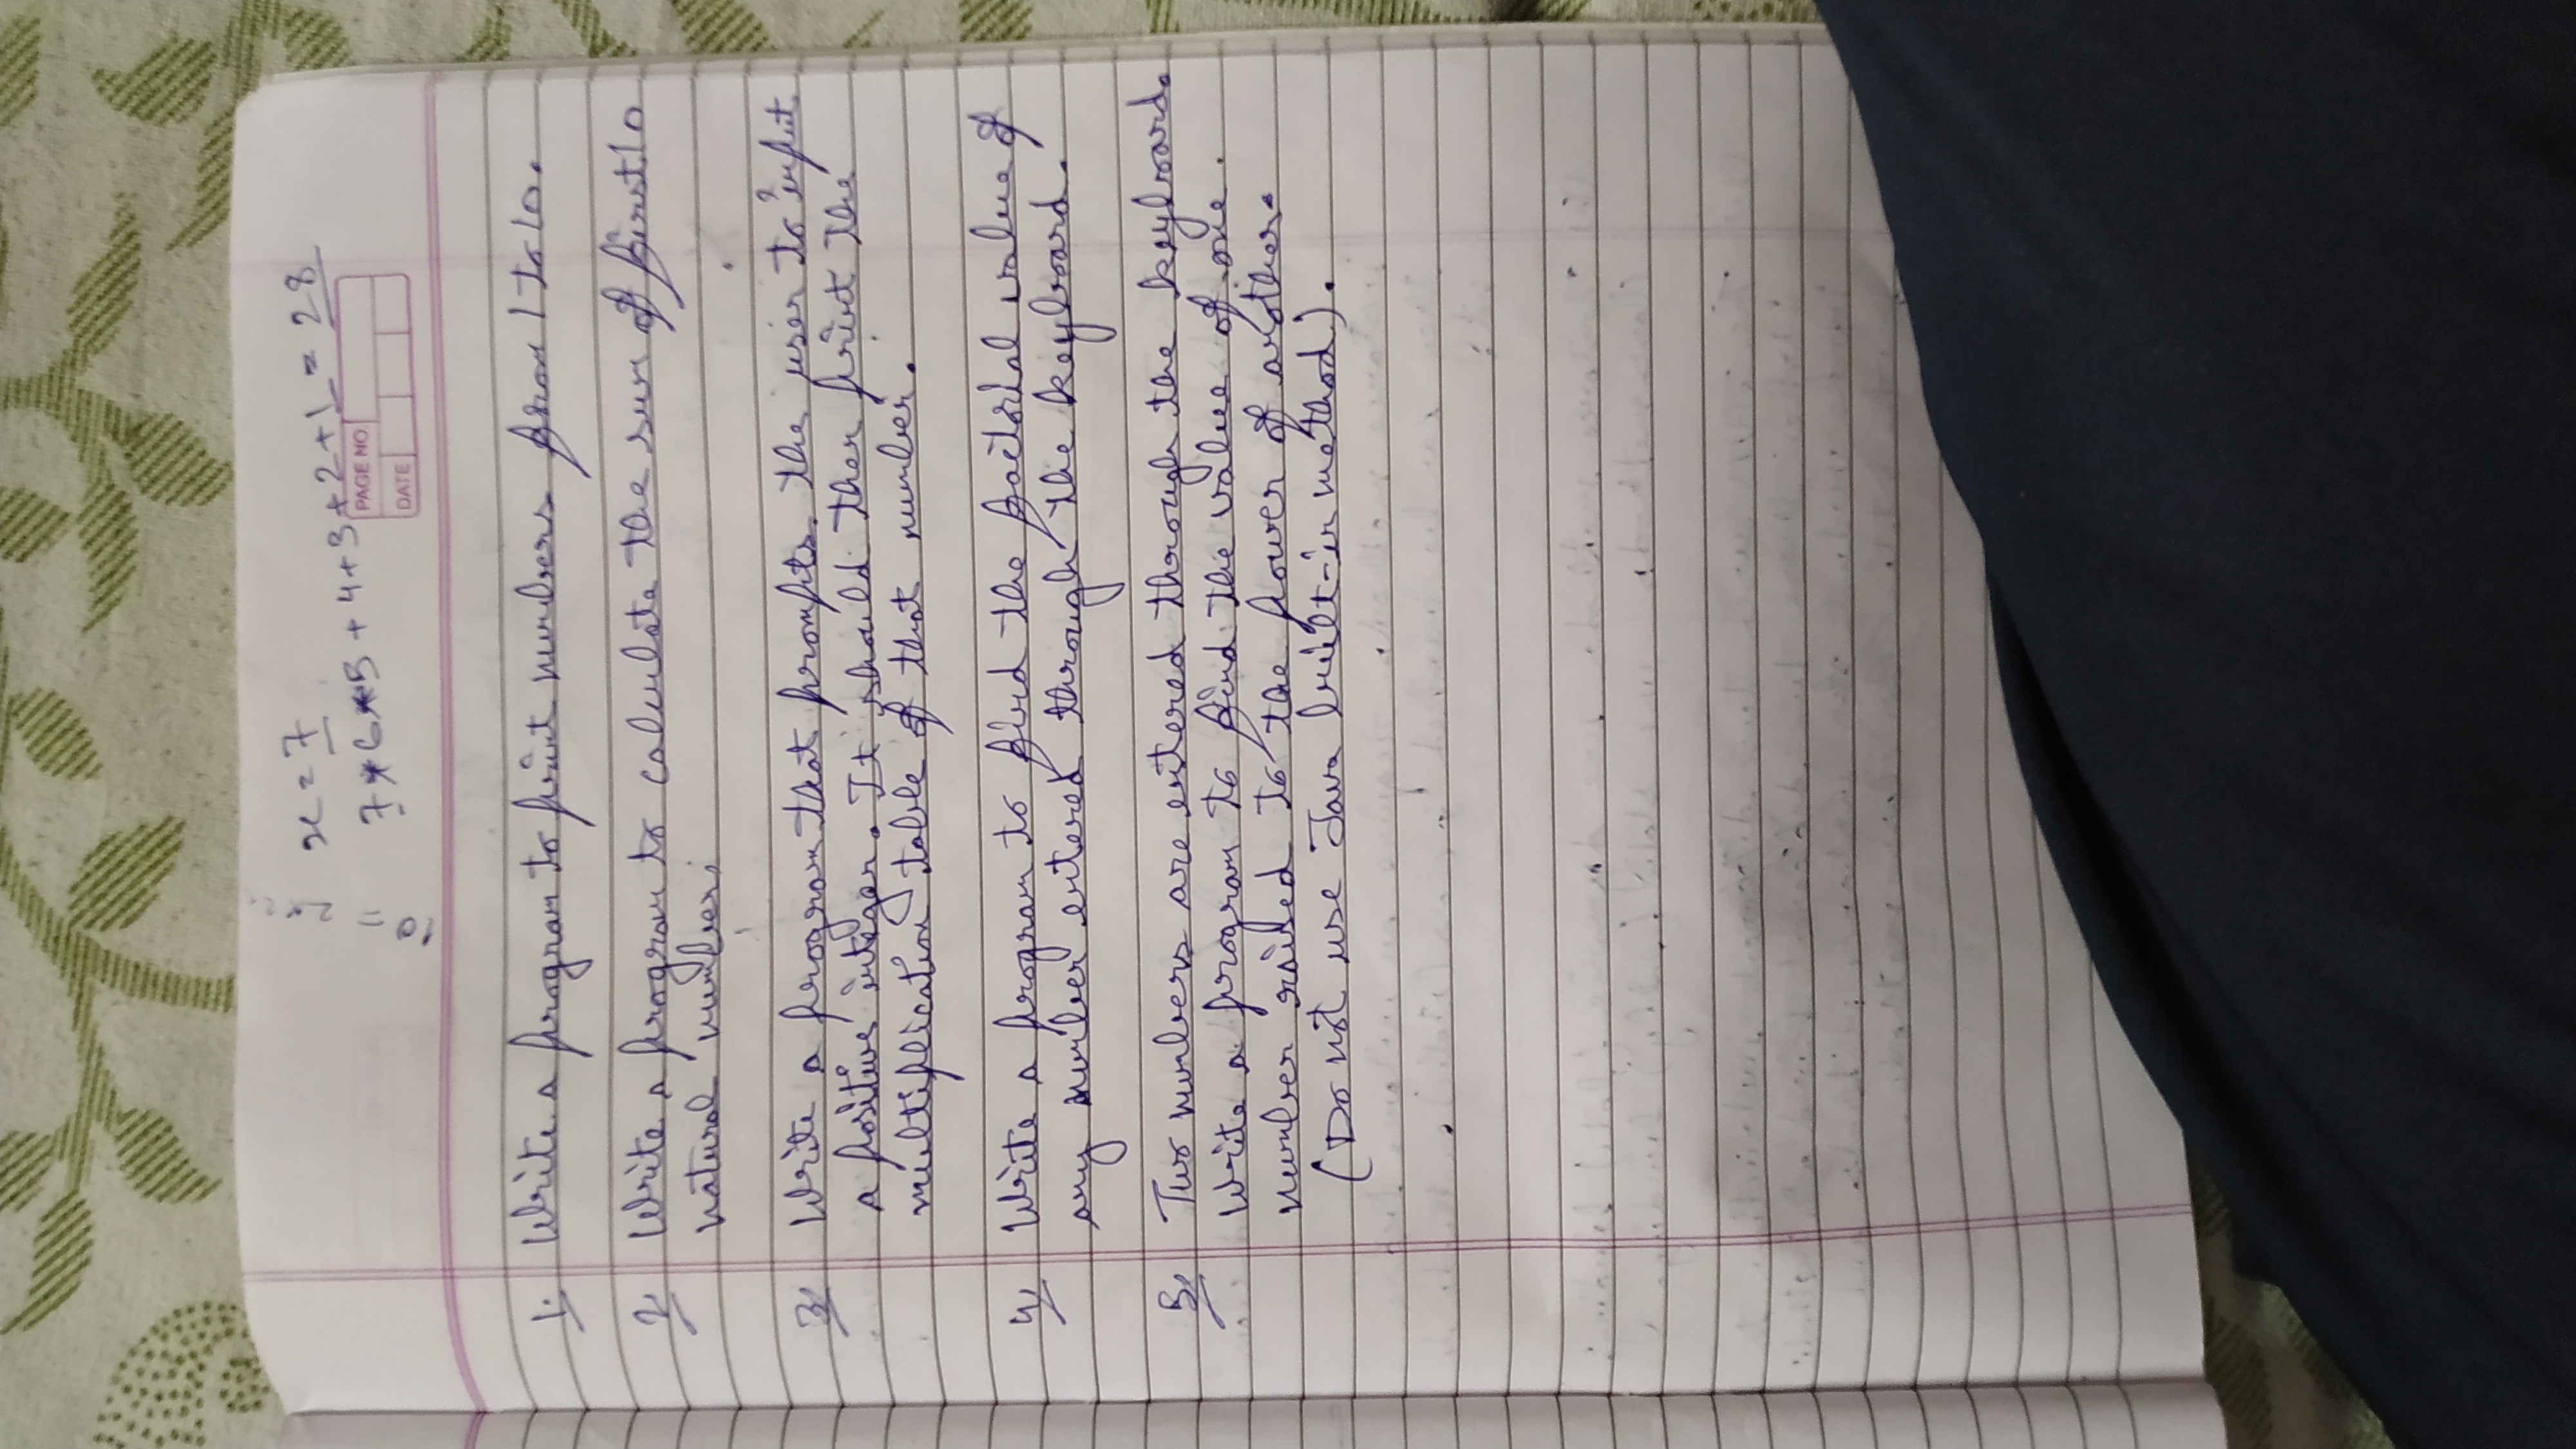 x = 7
7*6*5+4+3+2+1 = 28
10 =
PAGE NO
DATE
1. Write a program to print numbers from 1 to 10.
2. Write a program to calculate the sum of first 10
natural number.
3. Write a program that prompts the user to input
a positive integer. It should then print the
multiplication table of that number.
4. Write a program to find the factorial value of
any number entered through the keyboard.
5. Two numbers are entered through the keyboard.
Write a program to find the value of one
number raised to the power of another.
(Do not use Java built-in method).